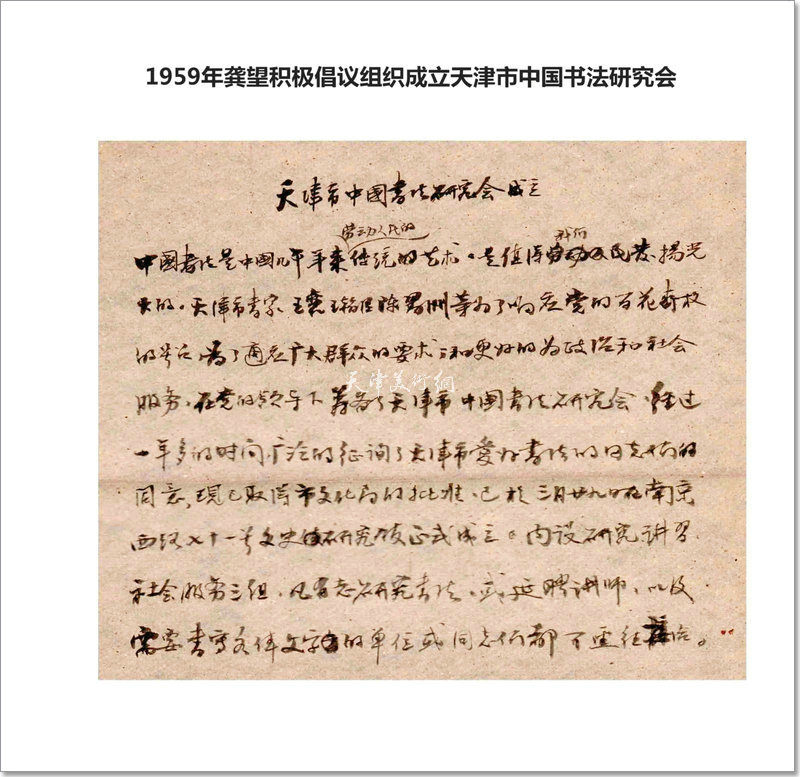 1959年龚望积极倡议组织成立天津市中国书法研究会
天津市中國書法研究会成立
劳动人民的
我们
中國書法是中國几千年来传统的艺术。是值得發揚光
大的。天津市書家王襄王翁如陈器洲等为了响应党的百花齐放
的号召为了適应广大群众的要求和更好的为政治和社会
天津美術網
服务,在党的领导下筹备了天津市中國書法研究会,经过
一年多的时间,广泛的征询了天津市爱好書法的同志们的
同意,現已取得市文化局的批准,已於三月廿九日在南京
西路七十一号文史研究馆正式成立。内设研究讲习
社会服务三组,凡有志研究書法,或延聘讲师,以及
需要書写各体文字的单位或同志们都可逕往洽。